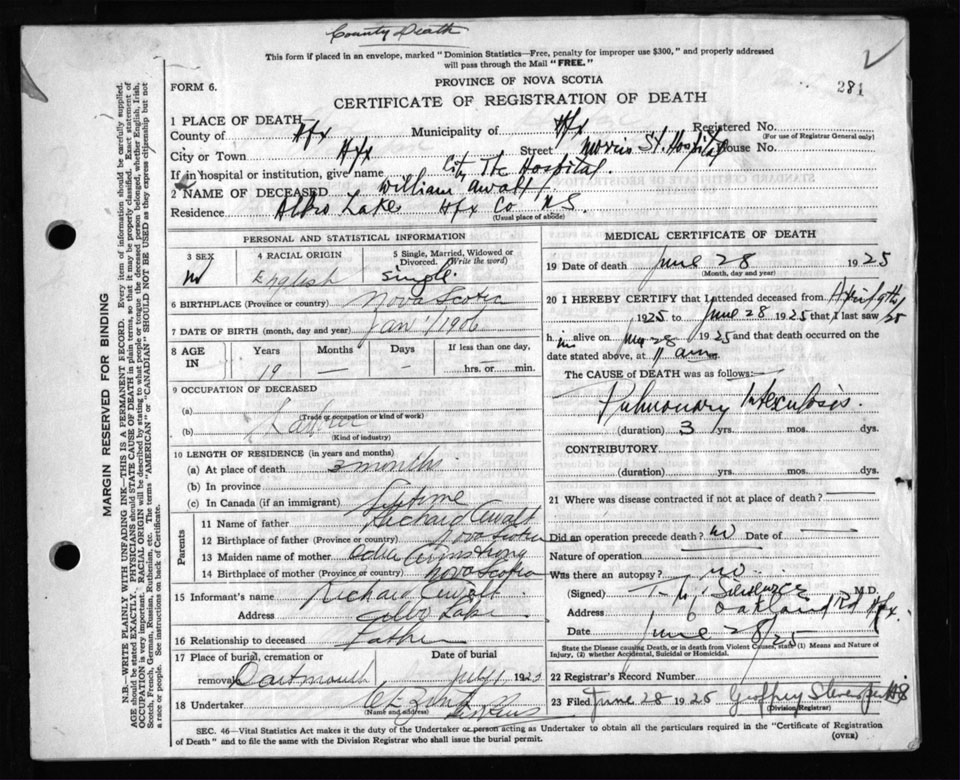 County Death
This form if placed in an envelope, marked "Dominion Statistics—Free, penalty for improper use $300," and properly addressed
will pass through the Mail "FREE."
PROVINCE OF NOVA SCOTIA
FORM 6.
281
CERTIFICATE OF REGISTRATION OF DEATH
1 PLACE OF DEATH
County of Hfx Municipality of Hfx Registered No.
(For use of Registrar General only)
City or Town Hfx Street Morris St. Hospital House No.
If in hospital or institution, give name City Tbc Hospital.
2 NAME OF DECEASED William Awalt
Residence Albro Lake Hfx Co N.S.
(Usual place of abode)
PERSONAL AND STATISTICAL INFORMATION
3 SEX 4 RACIAL ORIGIN 5 Single, Married, Widowed or
Divorced. (Write the word)
M English Single.
6 BIRTHPLACE (Province or country) Nova Scotia
7 DATE OF BIRTH (month, day and year) Jan 1/1906
8 AGE IN Years Months Days If less than one day,
19 — — hrs. or min.
9 OCCUPATION OF DECEASED
(a)
(Trade or occupation or kind of work)
(b)
(Kind of industry)
10 LENGTH OF RESIDENCE (in years and months)
(a) At place of death 3 months
(b) In province
(c) In Canada (if an immigrant) Lifetime
Parents
11 Name of father Richard Awalt
12 Birthplace of father (Province or country) Nova Scotia
13 Maiden name of mother Armstrong
14 Birthplace of mother (Province or country) Nova Scotia
15 Informant's name Richard Awalt
Address Albro Lake
16 Relationship to deceased Father
17 Place of burial, cremation or Date of burial
removal Dartmouth July 1 1925
18 Undertaker
(Name and address)
MEDICAL CERTIFICATE OF DEATH
19 Date of death June 28 1925
(Month, day and year)
20 I HEREBY CERTIFY that I attended deceased from April 9th/
1925 to June 28 1925 that I last saw /25
him alive on 28 1925 and that death occurred on the
date stated above, at 11 am.
The CAUSE OF DEATH was as follows:
Pulmonary Tuberculosis.
(duration) 3 yrs. mos. dys.
CONTRIBUTORY
(duration) yrs. mos. dys.
21 Where was disease contracted if not at place of death?
Did an operation precede death? no Date of
Nature of operation
Was there an autopsy? no
(Signed) M.D.
Address Oakland Rd Hfx.
Date June 28/25
State the Disease causing Death, or in death from Violent Causes, state (1) Means and Nature of
Injury, (2) whether Accidental, Suicidal or Homicidal.
22 Registrar's Record Number
23 Filed June 28 1925 Geoffrey
(Division Registrar)
SEC. 46—Vital Statistics Act makes it the duty of the Undertaker or person acting as Undertaker to obtain all the particulars required in the "Certificate of Registration
of Death" and to file the same with the Division Registrar who shall issue the burial permit.
(OVER)
MARGIN RESERVED FOR BINDING
N.B.—WRITE PLAINLY WITH UNFADING INK—THIS IS A PERMANENT RECORD. Every item of information should be carefully supplied.
AGE should be stated EXACTLY. PHYSICIANS should STATE CAUSE OF DEATH in plain terms, so that it may be properly classified. Exact statement of
OCCUPATION is very important. RACIAL ORIGIN will be described by stating to what people or tongue the deceased person belonged, whether English, Irish,
Scotch, French, German, Russian, Ruthenian, etc. The terms "AMERICAN" or "CANADIAN" SHOULD NOT BE USED as they express citizenship but not
a race or people. See instructions on back of Certificate.